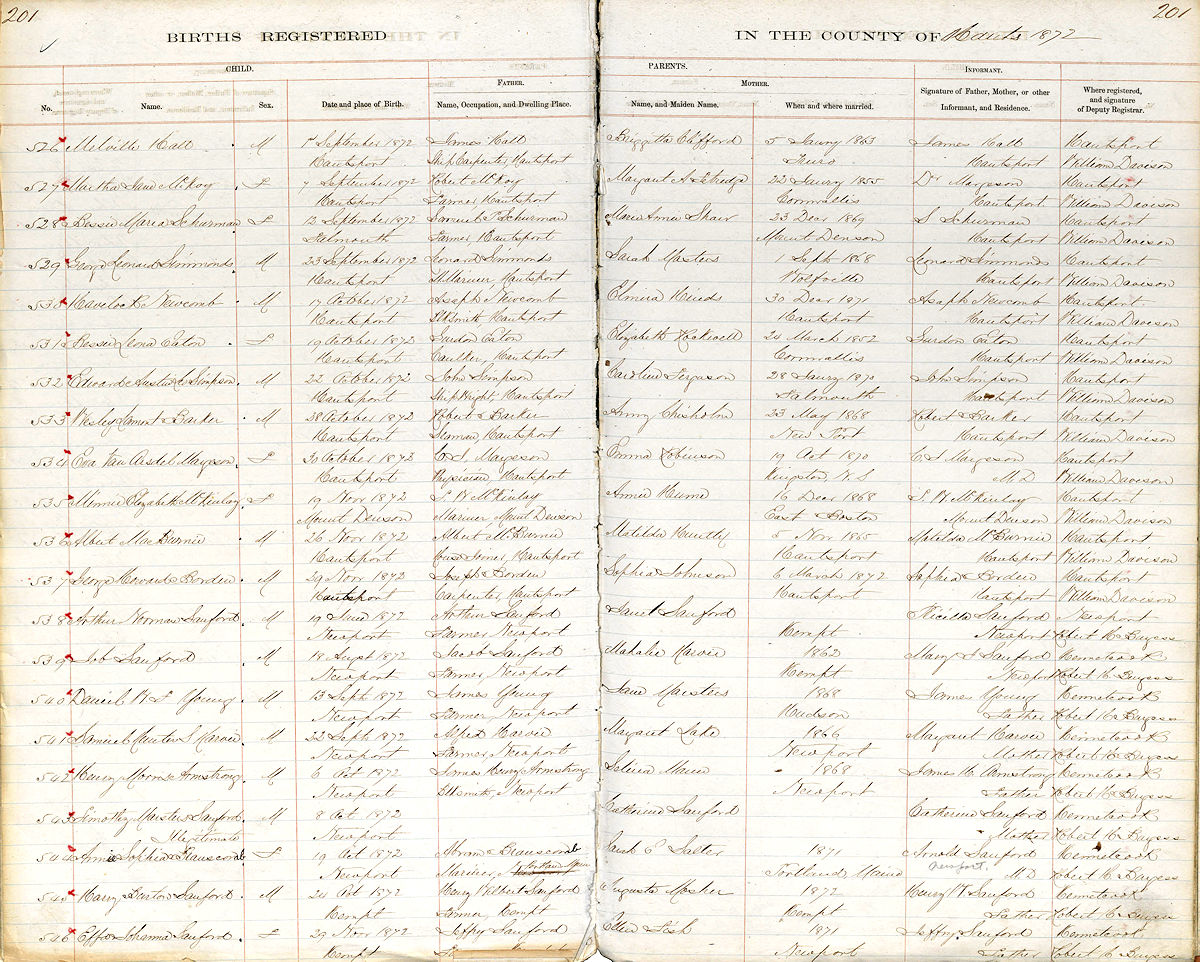 201 201
BIRTHS REGISTERED IN THE COUNTY OF Hants 1872
CHILD. PARENTS. INFORMANT.
FATHER. MOTHER.
No. Name. Sex. Date and place of Birth. Name, Occupation, and Dwelling Place. Name, and Maiden Name. When and where married. Signature of Father, Mother, or other Informant, and Residence. Where registered, and signature of Deputy Registrar.
526 Melville Hall M 1st September 1872 James Hall Briggitta Clifford 5 Jany 1863 James Hall Hantsport
Hantsport Ship Carpenter, Hantsport Truro Hantsport William Davison
527 Martha Jane McKoy F 7 September 1872 Robert McKoy Margaret A 22 Jany 1855 Dr Margeson Hantsport
Hantsport Farmer Hantsport Cornwallis Hantsport William Davison
528 Bessie Maria Schurman F 12 September 1872 Samuel Schurman Mary Anna Shaw 23 Decr 1869 S Schurman Hantsport
Falmouth Farmer, Hantsport Mount Denson Hantsport William Davison
529 George Leonard Simmonds M 23 September 1872 Leonard Simmonds Sarah Masters 1 Sept 1868 Leonard Simmonds Hantsport
Hantsport Mariner Hantsport Wolfville Hantsport William Davison
530 Havelock Newcomb M 17 October 1872 Asaph Newcomb Elmira Hinds 30 Decr 1871 Asaph Newcomb Hantsport
Hantsport Blksmith, Hantsport Hantsport Hantsport William Davison
531 Bessie Leona Eaton F 19 October 1872 Gurdon Eaton Elizabeth Rockwell 24 March 1852 Gurdon Eaton Hantsport
Hantsport Caulker, Hantsport Cornwallis Hantsport William Davison
532 Edward Austin C Simpson M 22 October 1872 John Simpson Caroline Ferguson 28 Jany 1870 John Simpson Hantsport
Hantsport Shipwright, Hantsport Falmouth Hantsport William Davison
533 Wesley Lamont Barker M 28 October 1872 Robert Barker Anny Chisholm 23 May 1868 Robert Barker Hantsport
Hantsport Seaman Hantsport New Port Hantsport William Davison
534 Eva Van Arsdel Margeson F 30 October 1872 C. I Margeson Emma Robinson 19 Oct 1870 C. I Margeson Hantsport
Hantsport Physician Hantsport Kingston N.S M D William Davison
535 Minnie Elizabeth McKinlay F 19 Nov 1872 S. W McKinlay Annie Hume 16 Decr 1868 S. W McKinlay Hantsport
Mount Denson Mariner Mount Denson East Boston Mount Denson William Davison
536 Albert MacBurnie M 26 Nov 1872 Albert McBurnie Matilda Huntly 5 Nov 1865 Matilda McBurnie Hantsport
Hantsport Hantsport Hantsport Hantsport William Davison
537 George Howard Borden M 29 Nov 1872 Joseph Borden Sophia Johnson 6 March 1872 Sophia Borden Hantsport
Hantsport Carpenter, Hantsport Hantsport Hantsport William Davison
538 Arthur Norman Sanford M 19 June 1872 Arthur Sanford Janet Sanford Sanford Newport
Newport Farmer Newport Kempt Newport Robert C Burgess
539 Job Sanford M 18 Augst 1872 Jacob Sanford Mahalie Harvie 1862 Mary Sanford Kennetcook
Newport Farmer, Newport Kempt Newport Robert C. Burgess
540 Daniel W F Young M 13 Sept 1872 James Young Jane Marsters 1868 James Young Kennetcook
Newport Farmer, Newport Hudson Father Robert C. Burgess
541 Samuel Hunter S Harvie M 22 Sept 1872 Alfred Harvie Margaret Lake 1866 Margaret Harvie Kennetcook
Newport Farmer, Newport Newport Mother Robert C. Burgess
542 Henry Morris Armstrong M 6 Oct 1872 James Henry Armstrong Selina 1868 James H Armstrong Kennetcook
Newport Blksmith, Newport Newport Father Robert C. Burgess
543 Timothy Marsters Sanford M 8 Oct 1872 Catherine Sanford Catherine Sanford Kennetcook
Illegitimate Newport Mother Robert C. Burgess
544 Annie Sophia Branscomb F 19 Oct 1872 Abram Branscomb Sarah E Salter 1871 Arnold Sanford Kennetcook
Newport Mariner, Portland Maine Portland Maine Newport. M D Robert C. Burgess
545 Harry Burton Sanford M 24 Oct 1872 Henry Wilbert Sanford Augusta Mosher 1872 Henry W Sanford Kennetcook
Kempt Farmer, Kempt Kempt Father Robert C Burgess
546 Effie Johanna Sanford F 29 Nov 1872 Jeffry Sanford Ellen Fish 1871 Jeffry Sanford Kennetcook
Kempt Newport Father Robert C. Burgess